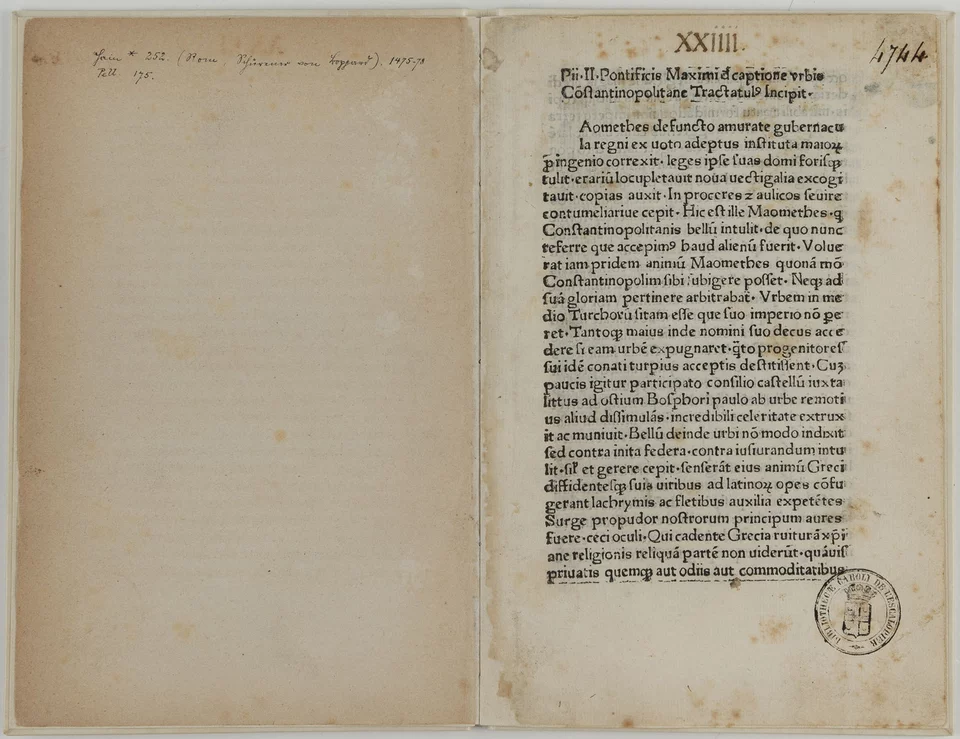 Hain * 252. (Rom, Schurener von Boppard), 1475-78
Pell. 175.
XXIIII.
4744
Pii·II·Pontificis Maximi đ captione vrbis
Cōstantinopolitane Tractatulꝰ Incipit·
Aomethes defuncto amurate gubernacu
la regni ex uoto adeptus instituta maioꝝ
ꝓ ingenio correxit· leges ipse suas domi forisqꝫ
tulit·erariū locupletauit noua uectigalia excogi
tauit·copias auxit·In proceres ⁊ aulicos seuire
contumeliariue cepit·Hic est ille Maomethes·q̄
Constantinopolitanis bellū intulit·de quo nunc
referre que accepimꝰ haud alienū fuerit·Volue
rat iam pridem animū Maomethes quonā mō
Constantinopolim sibi subigere posset·Neqꝫ ad
suā gloriam pertinere arbitrabat·Vrbem in me
dio Turchorū sitam esse que suo imperio nō ꝑe
ret·Tantoqꝫ maius inde nomini suo decus acce
dere si eam urbē expugnaret·q̄to progenitores
sui idē conati turpius acceptis destitissent·Cuꝫ
paucis igitur participato consilio castellū iuxta
littus ad ostium Bosphori paulo ab urbe remoti
us aliud dissimulās·incredibili celeritate extrux
it ac muniuit·Bellū deinde urbi nō modo indixit
sed contra inita federa·contra iusiurandum intu
lit·sil̄ et gerere cepit·senserāt eius animū Greci
diffidentesqꝫ suis uiribus ad latinoꝝ opes cōfu
gerant lachrymis ac fletibus auxilia expetētes
Surge propudor nostrorum principum aures
fuere·ceci oculi·Qui cadente Grecia ruiturā xp̄i
ane religionis reliquā partē non uiderūt·quāuis
priuatis quemqꝫ aut odiis aut commoditatibus
BIBLIOTHECÆ CAROLI DE L'ESCALOPIER